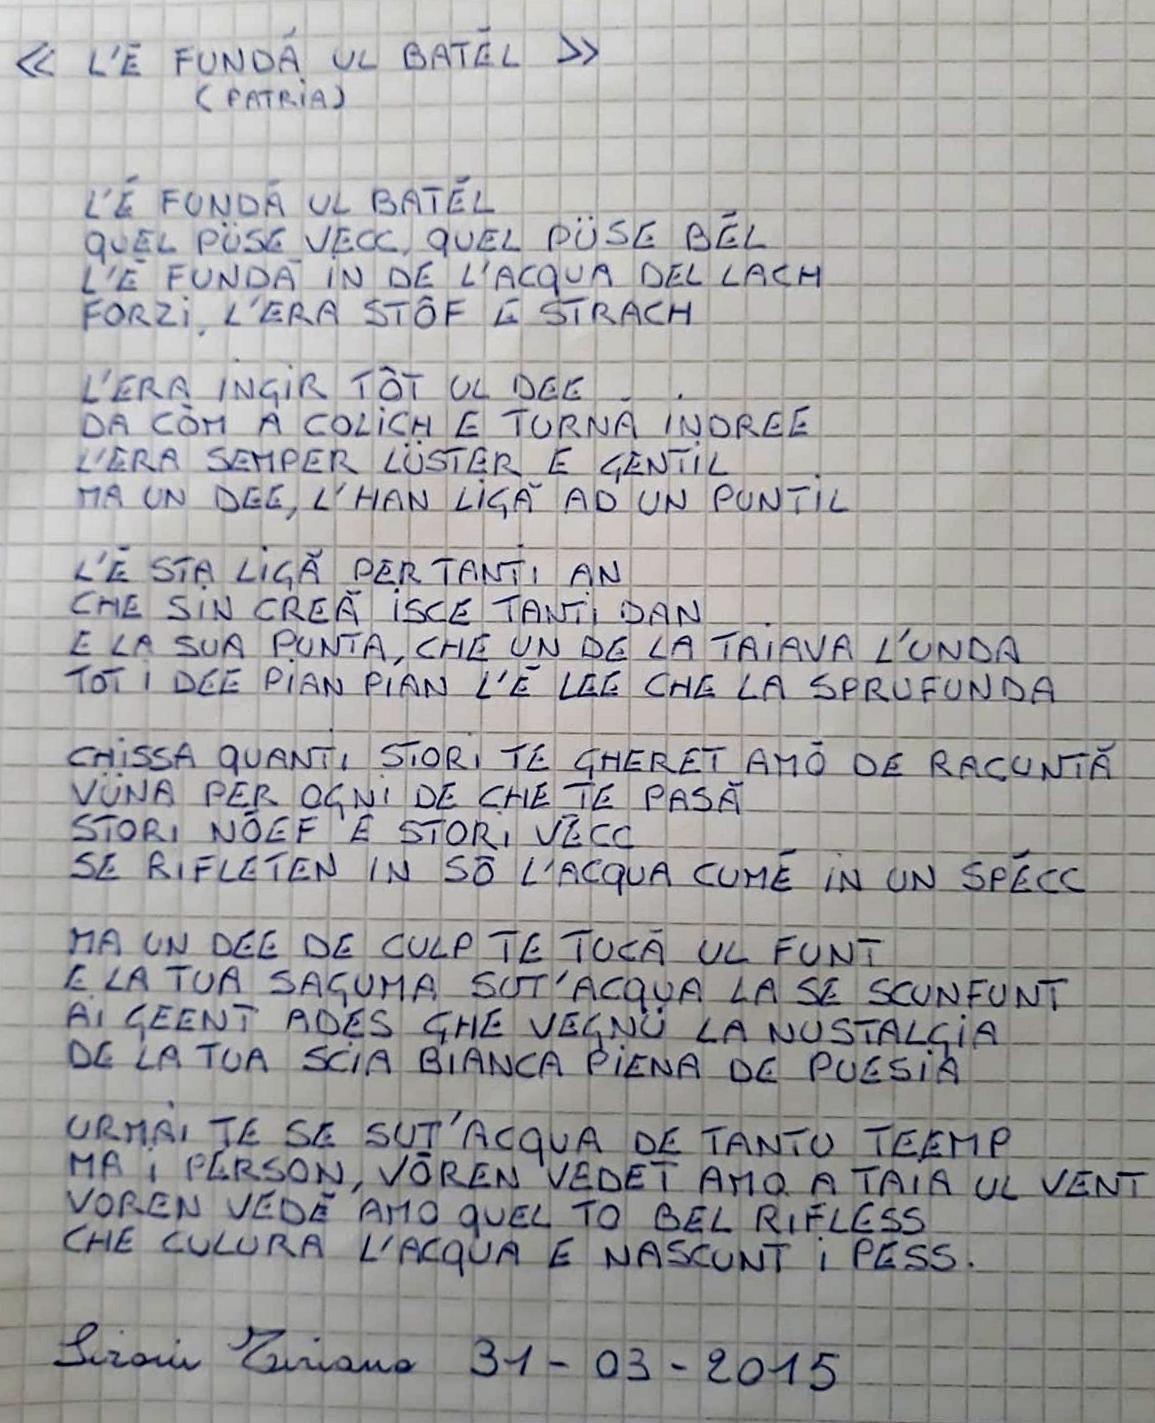 << L'É FUNDÁ UL BATÉL >>
(PATRIA)
L'É FUNDÁ UL BATÉL
QUEL PÜSE VECC, QUEL PÜSE BÉL
L'É FUNDÁ IN DE L'ACQUA DEL LACH
FORZI, L'ERA STÔF E STRACH
L'ERA INGIR TÔT UL DEE
DA CÒM A COLICH E TURNA INDREE
L'ERA SEMPER LÜSTER E GENTIL
MA UN DEE, L'HAN LIGÁ AD UN PUNTIL
L'É STA LIGÁ PER TANTI AN
CHE SIN CREÁ ISCE TANTI DAN
E LA SUA PUNTA, CHE UN DE LA TAIAVA L'UNDA
TOT I DEE PIAN PIAN L'É LEE CHE LA SPRUFUNDA
CHISSA QUANTI STORI TE GHERET AMÓ DE RACUNTÁ
VÜNA PER OGNI DE CHE TE PASÁ
STORI NÖEF E STORI VÉCC
SE RIFLETEN IN SÖ L'ACQUA CUMÉ IN UN SPÉCC
MA UN DEE DE CULP TE TUCÁ UL FUNT
E LA TUA SAGUMA SUT'ACQUA LA SE SCUNFUNT
AI GEENT ADES GHE VEGNÜ LA NUSTALGIA
DE LA TUA SCIA BIANCA PIENA DE PUESIA
URMAI TE SE SUT'ACQUA DE TANTU TEEMP
MA I PERSON, VÖREN VEDET AMO A TAIA UL VENT
VOREN VEDÉ AMO QUEL TO BEL RIFLESS
CHE CULURA L'ACQUA E NASCUNT I PESS.
31-03-2015